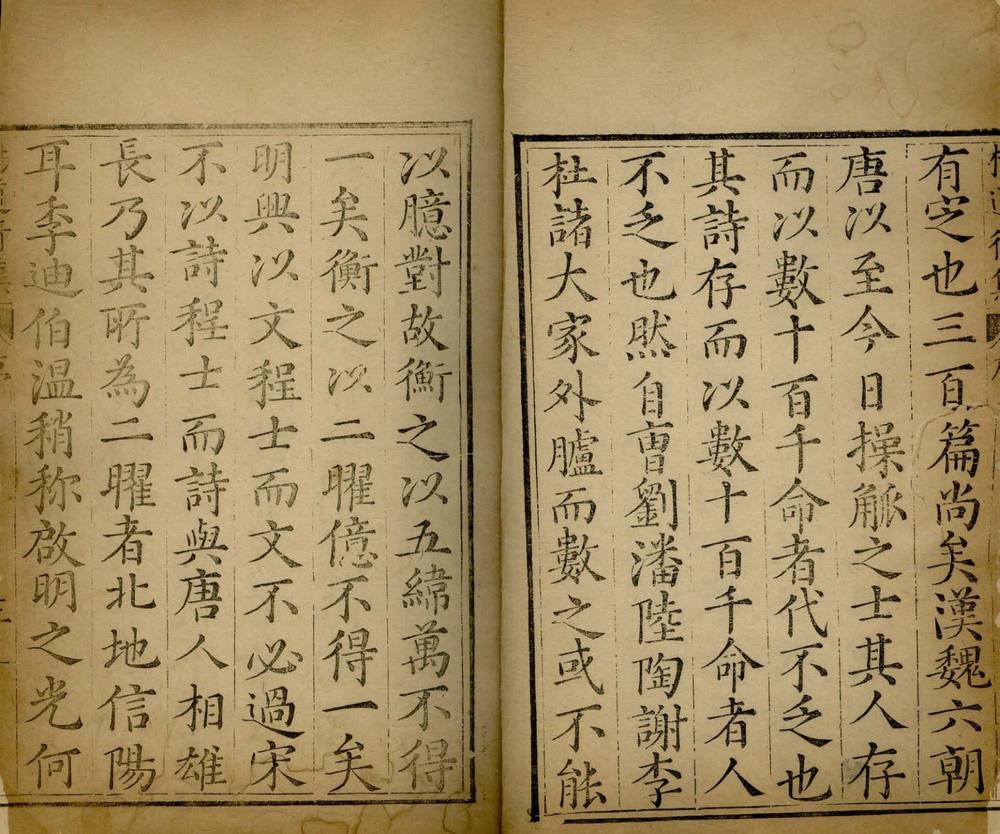 有定也三百篇尚矣漢魏六朝
唐以至今日操觚之士其人存
而以數十百千命者代不乏也
其詩存而以數十百千命者人
不乏也然自曹劉潘陸陶謝李
杜諸大家外臚而數之或不能
以臆對故衡之以五緯萬不得
一矣衡之以二曜億不得一矣
明興以文程士而文不必過宋
不以詩程士而詩與唐人相雄
長乃其所為二曜者北地信陽
耳季迪伯温稍称啟明之光何